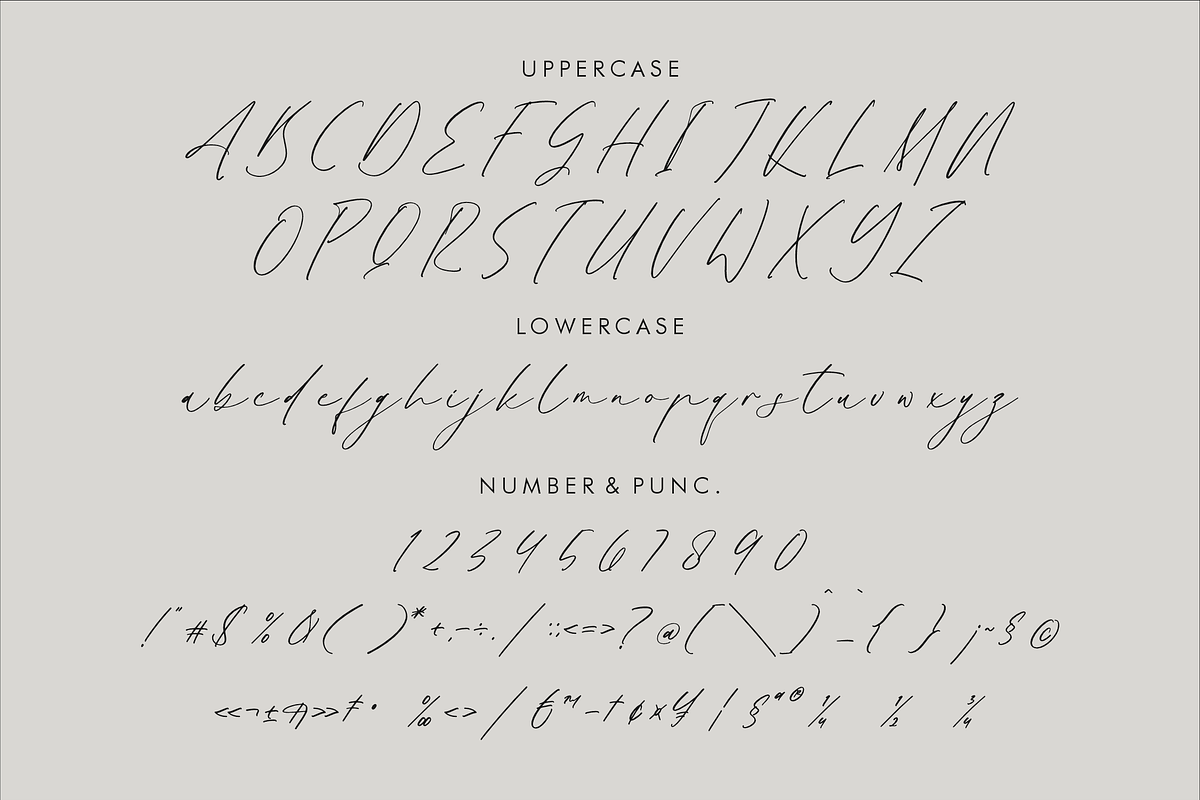 UPPERCASE
A B C D E F G H I J K L M N
O P Q R S T U V W X Y Z
LOWERCASE
a b c d e f g h i j k l m n o p q r s t u v w x y z
NUMBER & PUNC.
1 2 3 4 5 6 7 8 9 0
! " # $ % & ( ) * + , - ÷ . / : ; < = > ? @ [ \ ] ^ ` _ { } ¡ ~ § ©
« ¬ ± » ‡ • ‰ < > / € ™ – † ¢ ¤ ¥ ¦ § ª ® ¼ ½ ¾